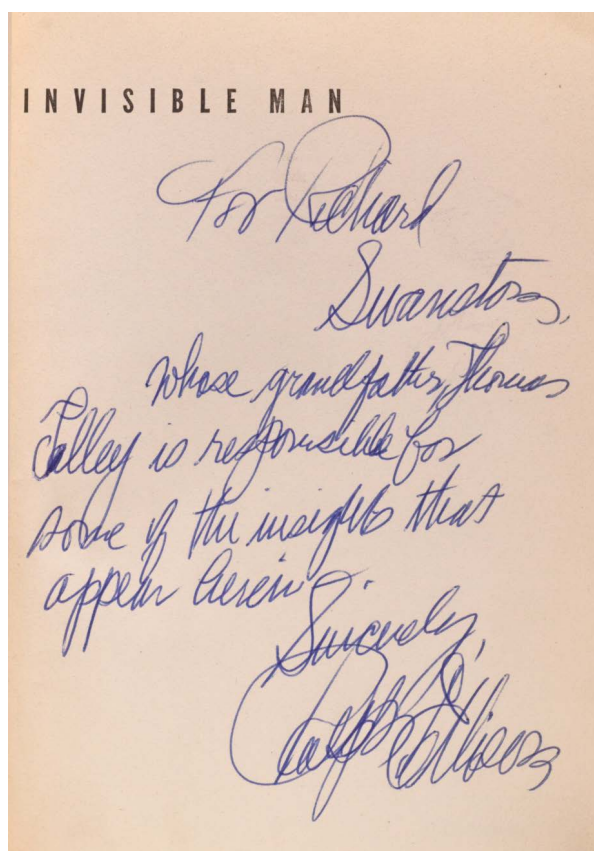 INVISIBLE MAN
For Richard
Swanston,
whose grandfather, Thomas
Talley is responsible for
some of the insights that
appear herein.
Sincerely,
Ralph Ellison